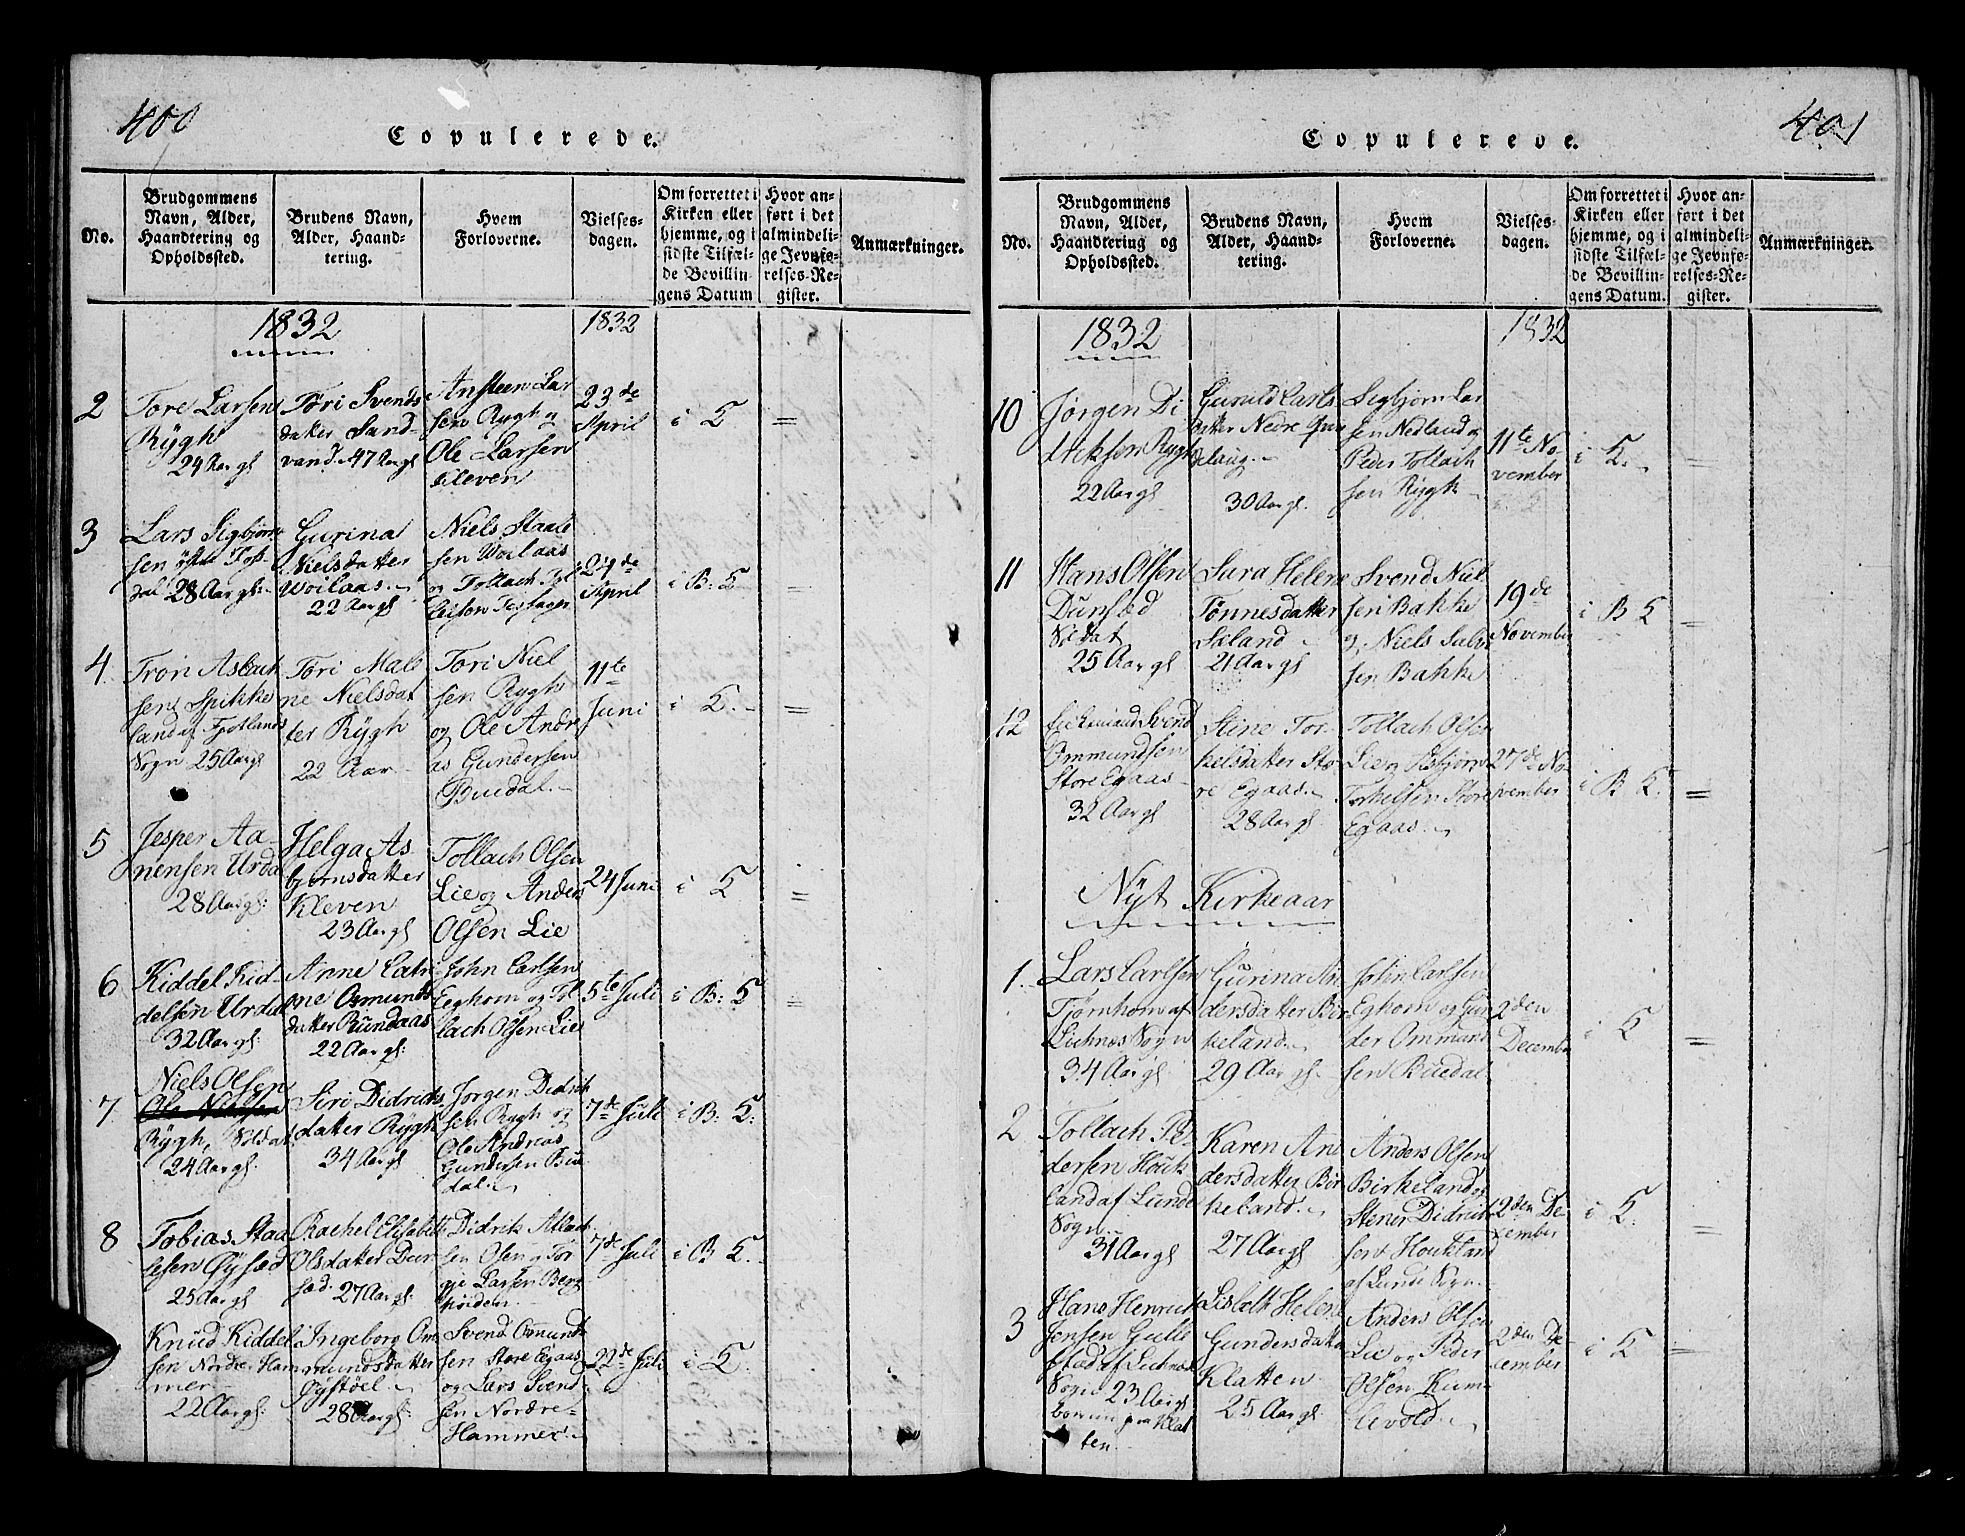 400
Copulerede.
No.
Brudgommens
Navn, Alder,
Haandtering og
Opholdssted.
Brudens Navn,
Alder, Haand-
tering.
Hvem
Forloverne.
Vielses-
dagen.
Om forrettet i
Kirken eller
hjemme, og i
sidste Tilfæl-
de Bevillin-
gens Datum
Hvor an-
ført i det
almindeli-
ge Jevnfø-
relses-Re-
gister.
Anmærkninger.
1832
1832
2
Tore Larsen
Rÿgh
24 Aar gl
Tøri Svends
datter Sand-
vand. 47 Aar gl
Ansteen Lar
sen Rygh og
Ole Larsen
Kleven
23de
April
i K
=
3
Lars Sigbjørn
sen
dal 28 Aar gl:
Gurina
Nielsdatter
Woilaas
22 Aar gl
Niels Staale
sen Woilaas
og Tollach
24de
April
i B: K
=
4
Tron Aslach
sen Spikke
land af Fjotlands
Sogn 25 Aar gl
Tøri Male
ne Nielsdat
ter Rÿgh
22 Aar
Tori Niel
sen Rygh
og Ole Andre
as Gundersen
Buedal.
11te
Juni
i K.
=
5
Jesper Aa-
nensen Urdal
28 Aar gl:
Helga As
bjørnsdatter
Kleven
23 Aar gl
Tollach Olsen
Lie og Anders
Olsen Lie
24 Juni
i K
=
6
Kiddel Kid-
delsen Urdal
32 Aar gl:
Anne Catri
ne Osmunds
datter Rundaas
22 Aar gl:
John Carlsen
Eeghom og Tol
lach Olsen Lie
5te Juli
i B: K
=
7.
Niels Olsen
Ole Nielsen
Rÿgh, Soldat
24 Aar gl:
Siri Didrichs
datter Rÿgh
34 Aar gl
Jørgen Didrik
sen Rygh og
Ole Andreas
Gundersen Bue
dal.
7de Juli
i B: K:
8
Tobias Staa
lesen Øÿsæd
25 Aar gl
Rachel Elisabeth
Olsdatter Duer
sæd. 27 Aar gl.
Didrik Atlach
sen Osen og Tor
gie Larsen Berg
22de Juli
7de Juli
i B K.
Knud Kiddel
sen Nordre Ham
mer
22 Aar gl:
Ingeborg Om
mundsdatter
Øÿstøel.
28 Aar gl:
Svend Osmund
sen Store Egaas
og Lars Svend
sen Nordre-
Hammer.
i K.
401
Copulerede.
No.
Brudgommens
Navn, Alder,
Haandtering og
Opholdssted.
Brudens Navn,
Alder, Haand-
tering.
Hvem
Forloverne.
Vielses-
dagen.
Om forrettet i
Kirken eller
hjemme, og i
sidste Tilfæl-
de Bevillin-
gens Datum.
Hvor an-
ført i det
almindeli-
ge Jevnfø-
relses-Re-
gister.
Anmærkninger.
1832
1832
10
Jørgen Di
driksen Rygh
22 Aar gl
Gunuld Carls
datter Nedre
30 Aar gl.
Sigbjørn Lar
sen Nedland og
Peder Tollach
sen Rygh
11te No-
vember
i K.
=
11
Hans Olsen
Dunsed
Soldat
25 Aar gl
Sara Helene
Tønnesdatter
Sæland
21 Aar gl
Svend Niel
sen Bakke
og Niels
sen Bakke
19de
November
i B K
=
12
Svend
Ommundsen
Store Egaas
32 Aar gl
Stine Tor-
kelsdatter Sto
re Egaas.
28 Aar gl
Tollach Olsen
Lie og Asbjørn
Torkelsen Store
Egaas.
27de No-
vember
i B K.
=
Nÿt Kirkeaar
1.
Lars Carlsen
Tjørnhom af
Siehnæs Sogn
34 Aar gl
Gurina An
dersdatter Bir
keland.
29 Aar gl.
John Carlsen
Eghom og Gun
der Ommund
sen Buedal
2den
December
i K
=
2
Tollach Pe-
dersen Houk
land af Lunde
Sogn
31 Aar gl
Karen An
dersdatter Bir
keland.
27 Aar gl
Anders Olsen
Birkeland og
Stener Didrik
sen Houkland
af Lunde Sogn.
2den De-
cember
i K.
=
3
Hans Henrik
Jensen Gulle
stad af Siehnæs
Sogn 23 Aar gl
boende paa Klat
ten
Lisbeth Helene
Gundersdatter
Klatten
25 Aar gl
Anders Olsen
Lie og Peder
Olsen Kum
levold.
2den De-
cember
i K
=